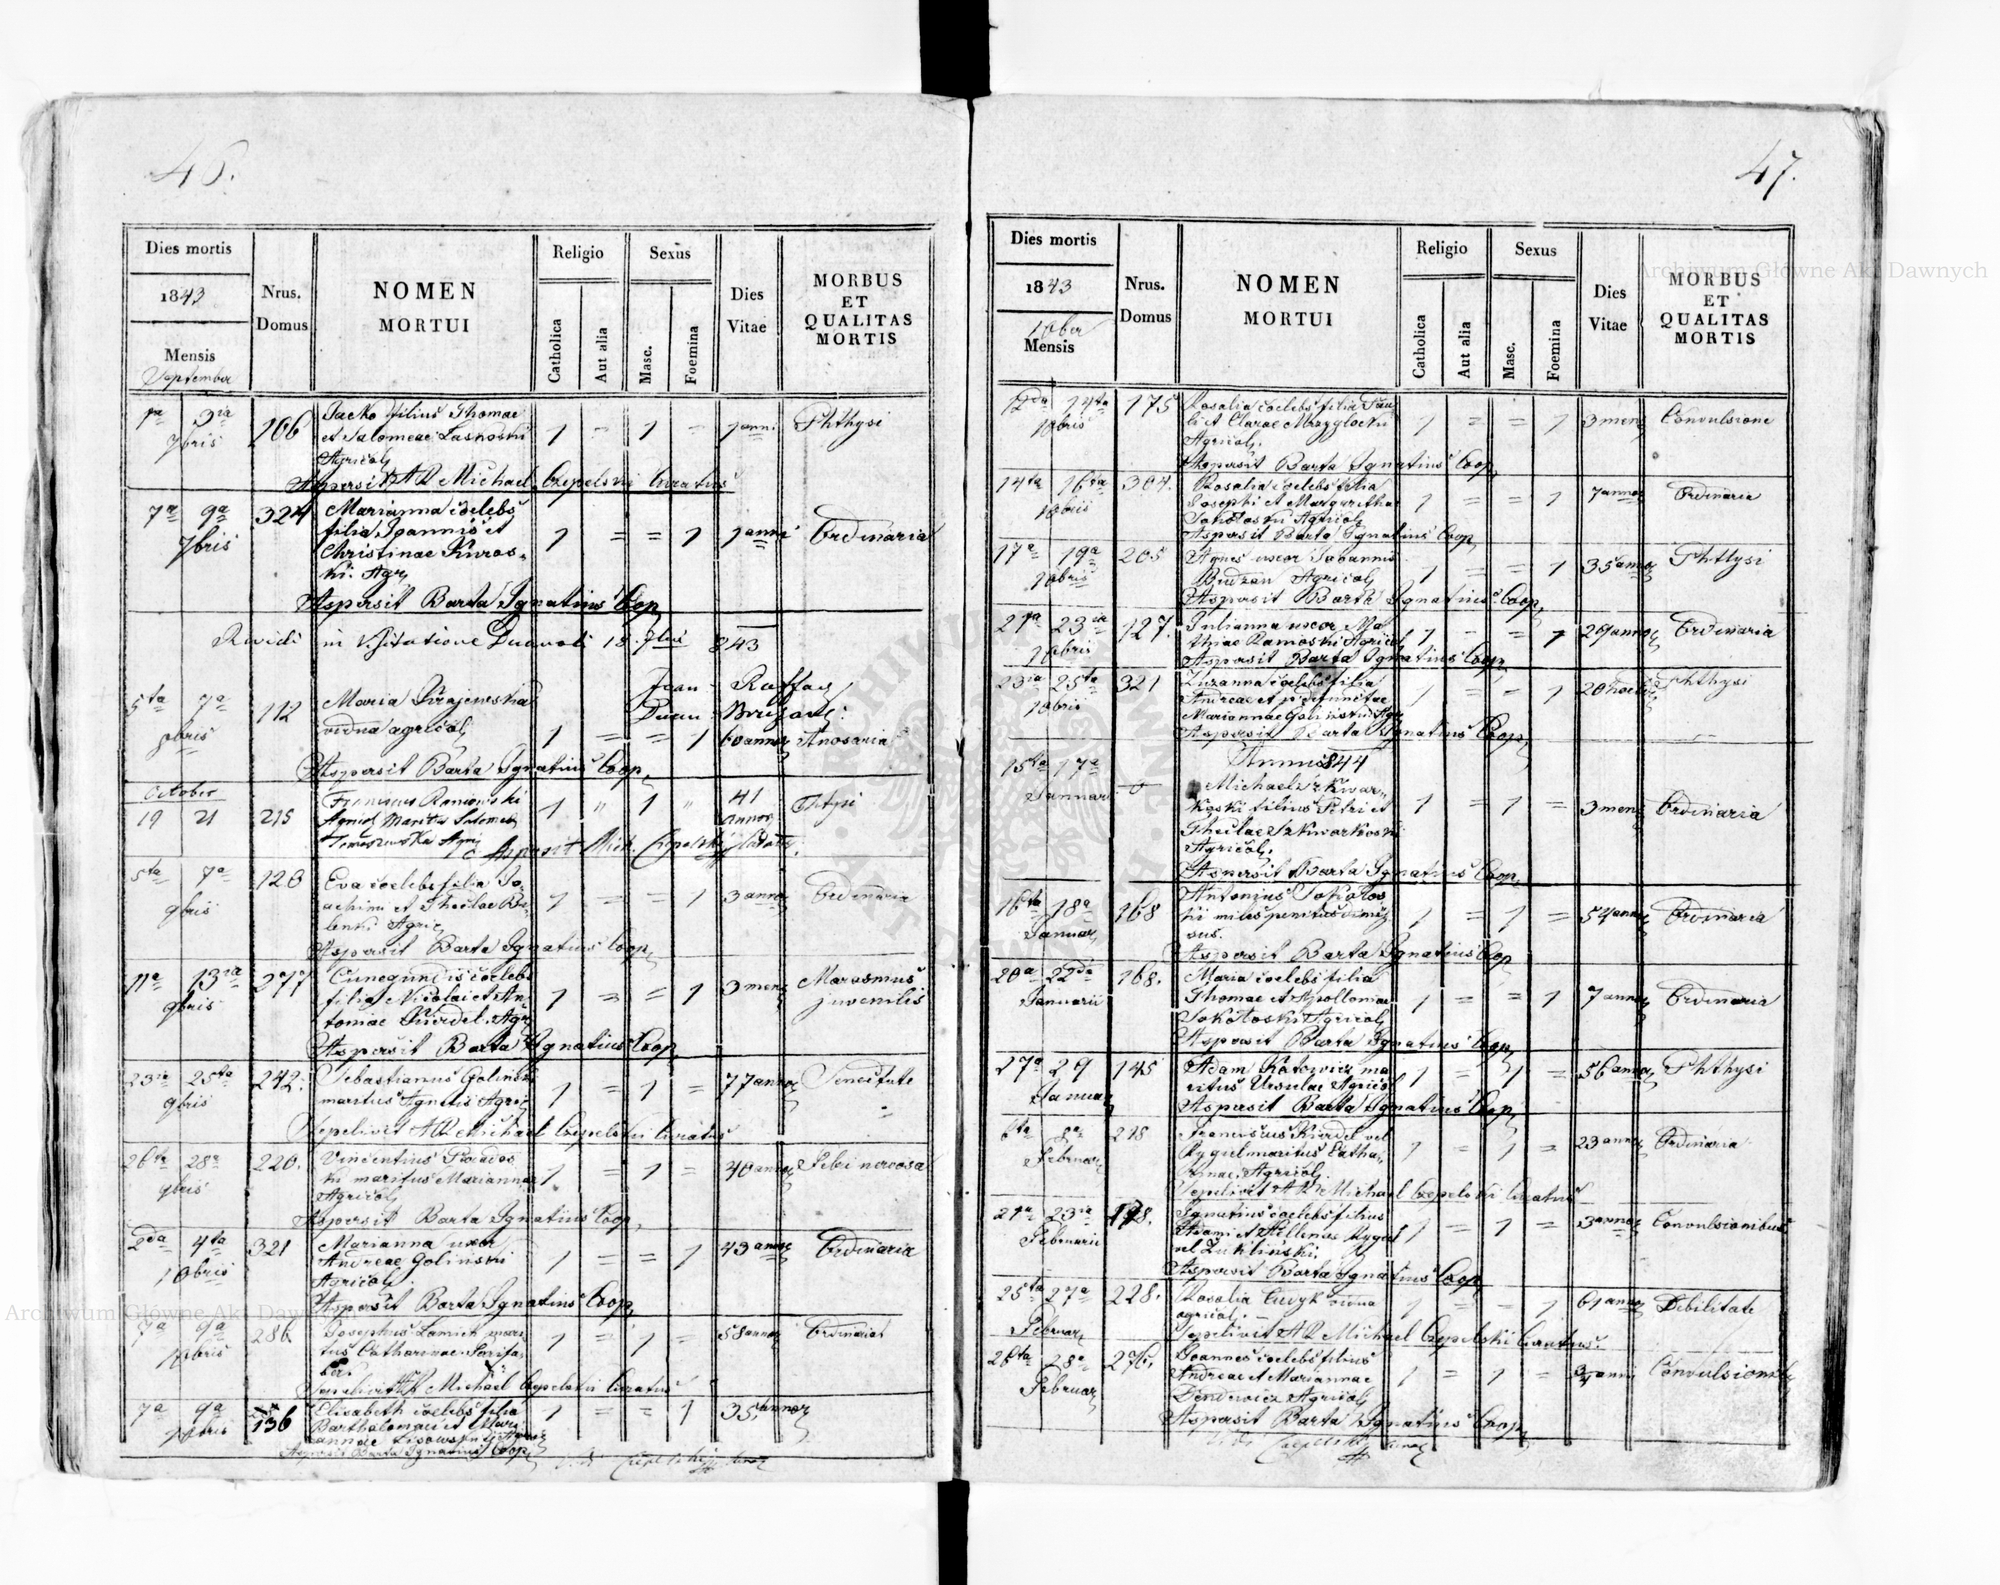 46.
Dies mortis
1843
Mensis
September
Nrus.
Domus
NOMEN
MORTUI
Religio
Catholica
Aut alia
Sexus
Masc.
Foemina
Dies
Vitae
MORBUS
ET
QUALITAS
MORTIS
1a 3ia 106 filius Thomae 1 = 1 = 1 anni Phthysi
7bris et Salomeae Laskoski
Agricol
Aspersit AR Michael Czepelski Curatus
7a 9a 324 Marianna coelebs 1 = = 1 1 anni Ordinaria
7bris filia Joannis et
Christinae
ki. Agr
Aspersit Barta Ignatius Coop
in Visitatione 18. 7bris 843
5ta 7a 112 Maria 1 = = 1 60 annor
8bris vidua agricol
Aspersit Barta Ignatius Coop
October
19 21 215 Franciscus 1 " 1 " 41
Agricol Maritus Salomeae annor
Tomaszewska Agri
Aspersit Mich. Czepelski
5ta 7a 120 Eva coelebs filia Jo- 1 = = 1 3 annor Ordinaria
9bris achimi et Theclae
Agric
Aspersit Barta Ignatius Coop
11a 13ia 277 Cunegundis coelebs 1 = = 1 3 mens Marasmus
9bris filia Nicolai et An- juvenilis
toniae Kierdel. Agr
Aspersit Barta Ignatius Coop
23ia 25ta 242. Sebastianus Golinski 1 = 1 = 77 annor Senectute
9bris maritus Agnetis Agric
Sepelivit AR Michael Czepelski Curatus
26ta 28a 220. Vincentius 1 = 1 = 40 annor Febri nervosa
9bris ki maritus Mariannae
Agricol
Aspersit Barta Ignatius Coop
2da 4ta 321 Marianna uxor 1 = = 1 43 annor Ordinaria
10bris Andreae Golinski
Agricol
Aspersit Barta Ignatius Coop
7a 9a 286 Josephus Lamich mari- 1 = 1 = 58 annor
10bris tus Catharinae
Sepelivit AR Michael Czepelski Curatus
7a 9a 136 Elisabeth coelebs filia 1 = = 1 35 annor
10bris Bartholomaei et Mari-
annae
Aspersit Barta Ignatius Coop
47.
Dies mortis
1843
10ber
Mensis
Nrus.
Domus
NOMEN
MORTUI
Religio
Catholica
Aut alia
Sexus
Masc.
Foemina
Dies
Vitae
MORBUS
ET
QUALITAS
MORTIS
12da 14ta 175 Rosalia coelebs filia Pau- 1 = = 1 3 mens Convulsione
10bris li et Clarae
Agricol.
Aspersit Barta Ignatius Coop
14ta 16ta 304. Rosalia coelebs filia 1 = = 1 7 annor Ordinaria
10bris Josephi et Margarethae
Sokołoski Agricol
Aspersit Barta Ignatius Coop
17a 19a 205 Agnes uxor Johannis 1 = = 1 35 annor Phthysi
10bris Budzan Agricol
Aspersit Barta Ignatius Coop
21a 23ia 127. Julianna uxor Ma- 1 = = 1 29 annor Ordinaria
10bris thiae Ramoski Agricol
Aspersit Barta Ignatius Coop
23ia 25ta 321 Zuzanna coelebs filia 1 = = 1 Phthysi
10bris Andreae et defunctae
Mariannae Golinski Agr
Aspersit Barta Ignatius Coop
Annus 844
15ta 17a Michael 1 = 1 = 3 mens Ordinaria
Januar filius Petri et
Theclae
Agricol.
Aspersit Barta Ignatius Coop
16ta 18a 168 Antonius Sokołos- 1 = 1 = 54 annor Ordinaria
Januar ki miles
Aspersit Barta Ignatius Coop
20a 22da 168. Maria coelebs filia 1 = = 1 7 annor Ordinaria
Januarii Thomae et Apolloniae
Sokołoski Agricol
Aspersit Barta Ignatius Coop
27a 29 145 Adam Katowicz ma- 1 = 1 = 56 annor Phthysi
Januar ritus Ursulae Agricol
Aspersit Barta Ignatius Coop
6ta 8a 218 Franciscus Kierdel vel 1 = 1 = 23 annor Ordinaria
Februar Rygiel maritus Catha-
rinae. Agricol
Sepelivit AR Michael Czepelski Curatus
21a 23ia 198. Ignatius coelebs filius 1 = 1 = 3 annor Convulsionibus
Februarii Adami et Hellenae Rygiel
vel Zuklinski.
Aspersit Barta Ignatius Coop
25ta 27a 228. Rosalia vidua 1 = = 1 61 annor Debilitate
Februar agricol.
Sepelivit AR Michael Czepelski Curatus.
26ta 28a 276. Joannes coelebs filius 1 = 1 = Convulsionib
Februar Andreae et Mariannae
Agricol
Aspersit Barta Ignatius Coop
Archiwum Główne Akt Dawnych